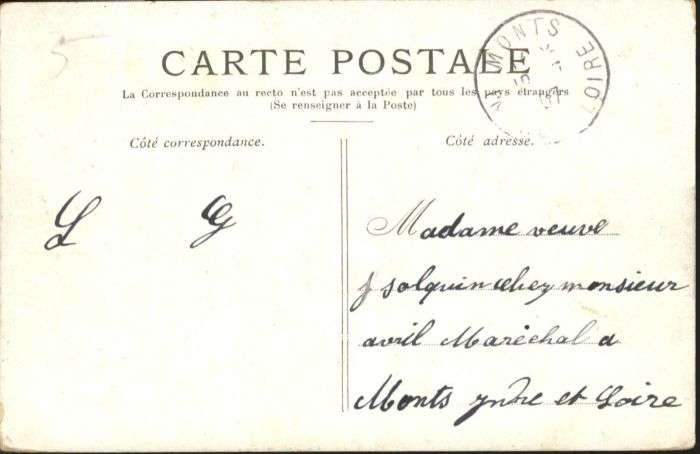 5
CARTE POSTALE
La Correspondance au recto n'est pas acceptée par tous les pays étrangers
(Se renseigner à la Poste)
MONTS LOIRE
Côté correspondance.
Côté adresse.
L G
Madame veuve
J solquin chez monsieur
avril Maréchal a
Monts yndre et Loire